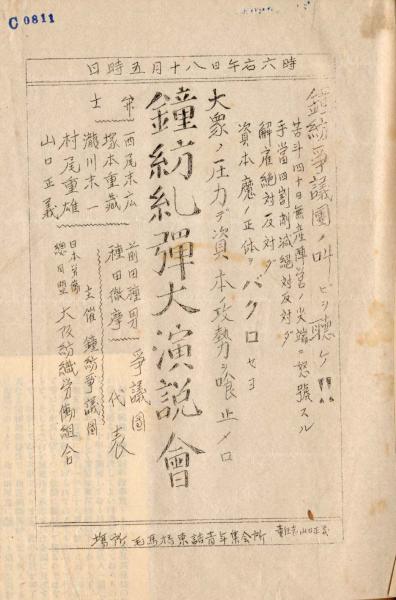 C 0811
日時五月十八日午后六時
鐘紡爭議團ノ叫ビヲ聽ケ!!
苦斗四十日無産陣営ノ尖端ニ怒號スル
手當四割削減絶対反対ダ
解雇絶対反対ダ
資本魔ノ正体ヲバクロセヨ
大衆ノ圧力デ資本攻勢ヲ喰止メロ
鐘紡糺彈大演説會
弁士
西尾末広
塚本重蔵
瀧川末一
村尾重雄
山口正義
前田種男
種田微摩
爭議團代表
主催 鐘紡爭議團
日本労働総同盟 大阪紡織労働組合
場所 毛馬橋東詰青年集会所
責任者山口正義